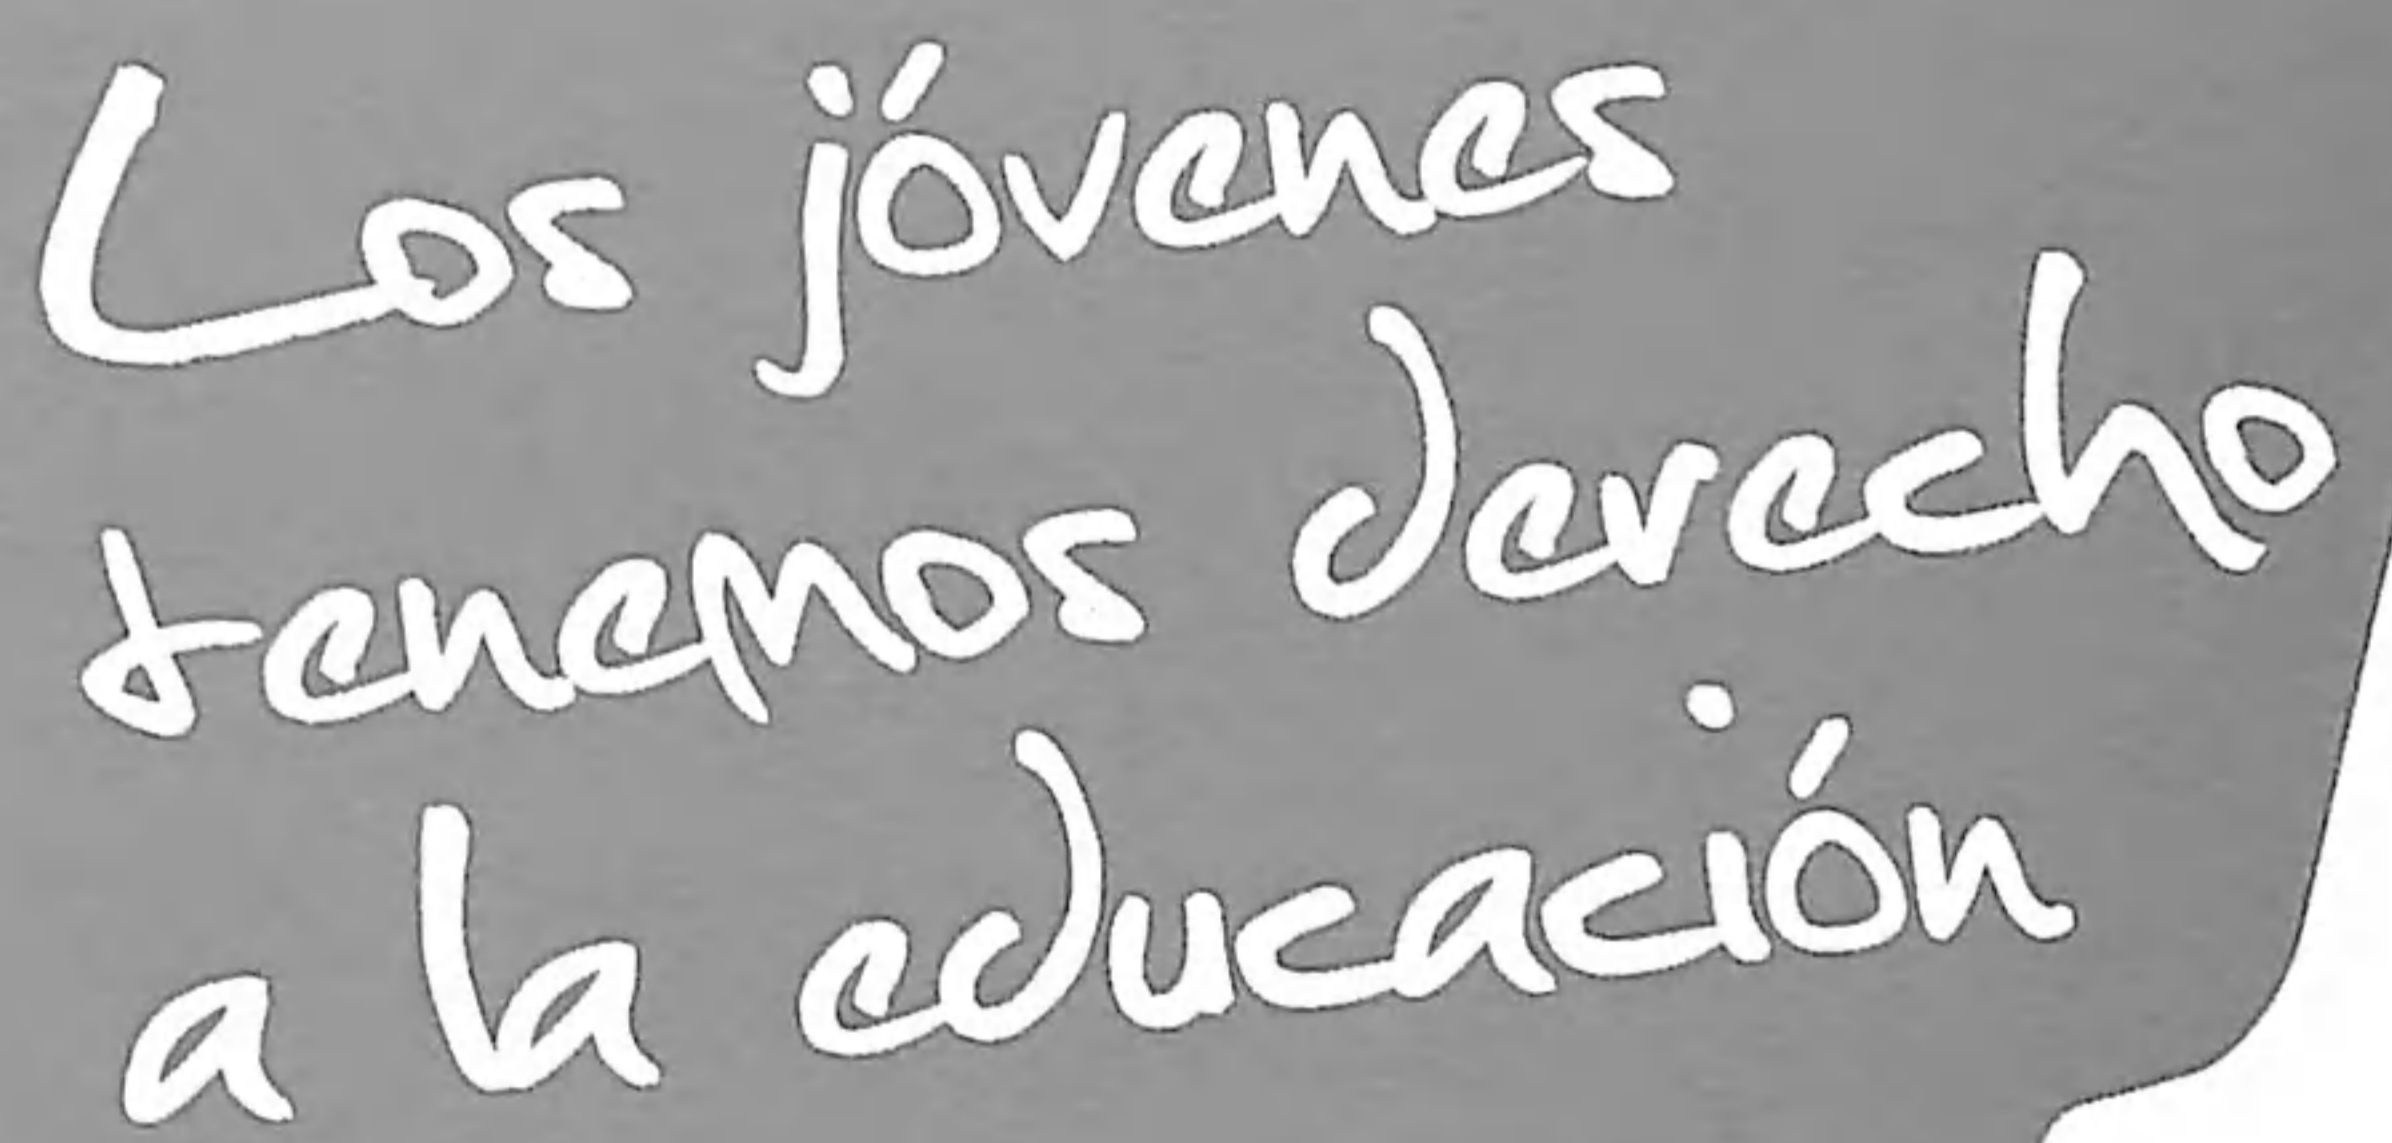 Los jóvenes
tenemos derecho
a la educación